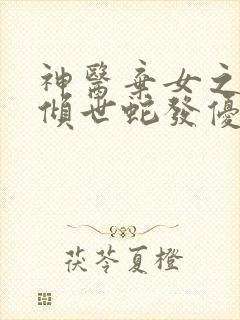 神醫棄女之
傾世蛇發優
茯苓夏橙